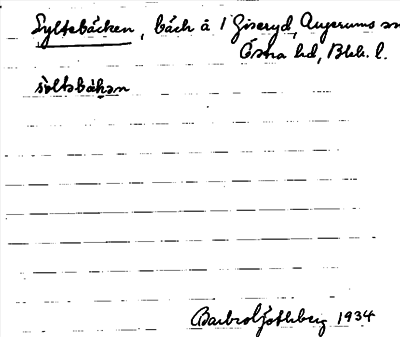 Syltebäcken, bäck å 1 Giseryd, Augerums sn
Östra hd, Blek. l.
sỳltəbäkən
Barbro Göthberg 1934